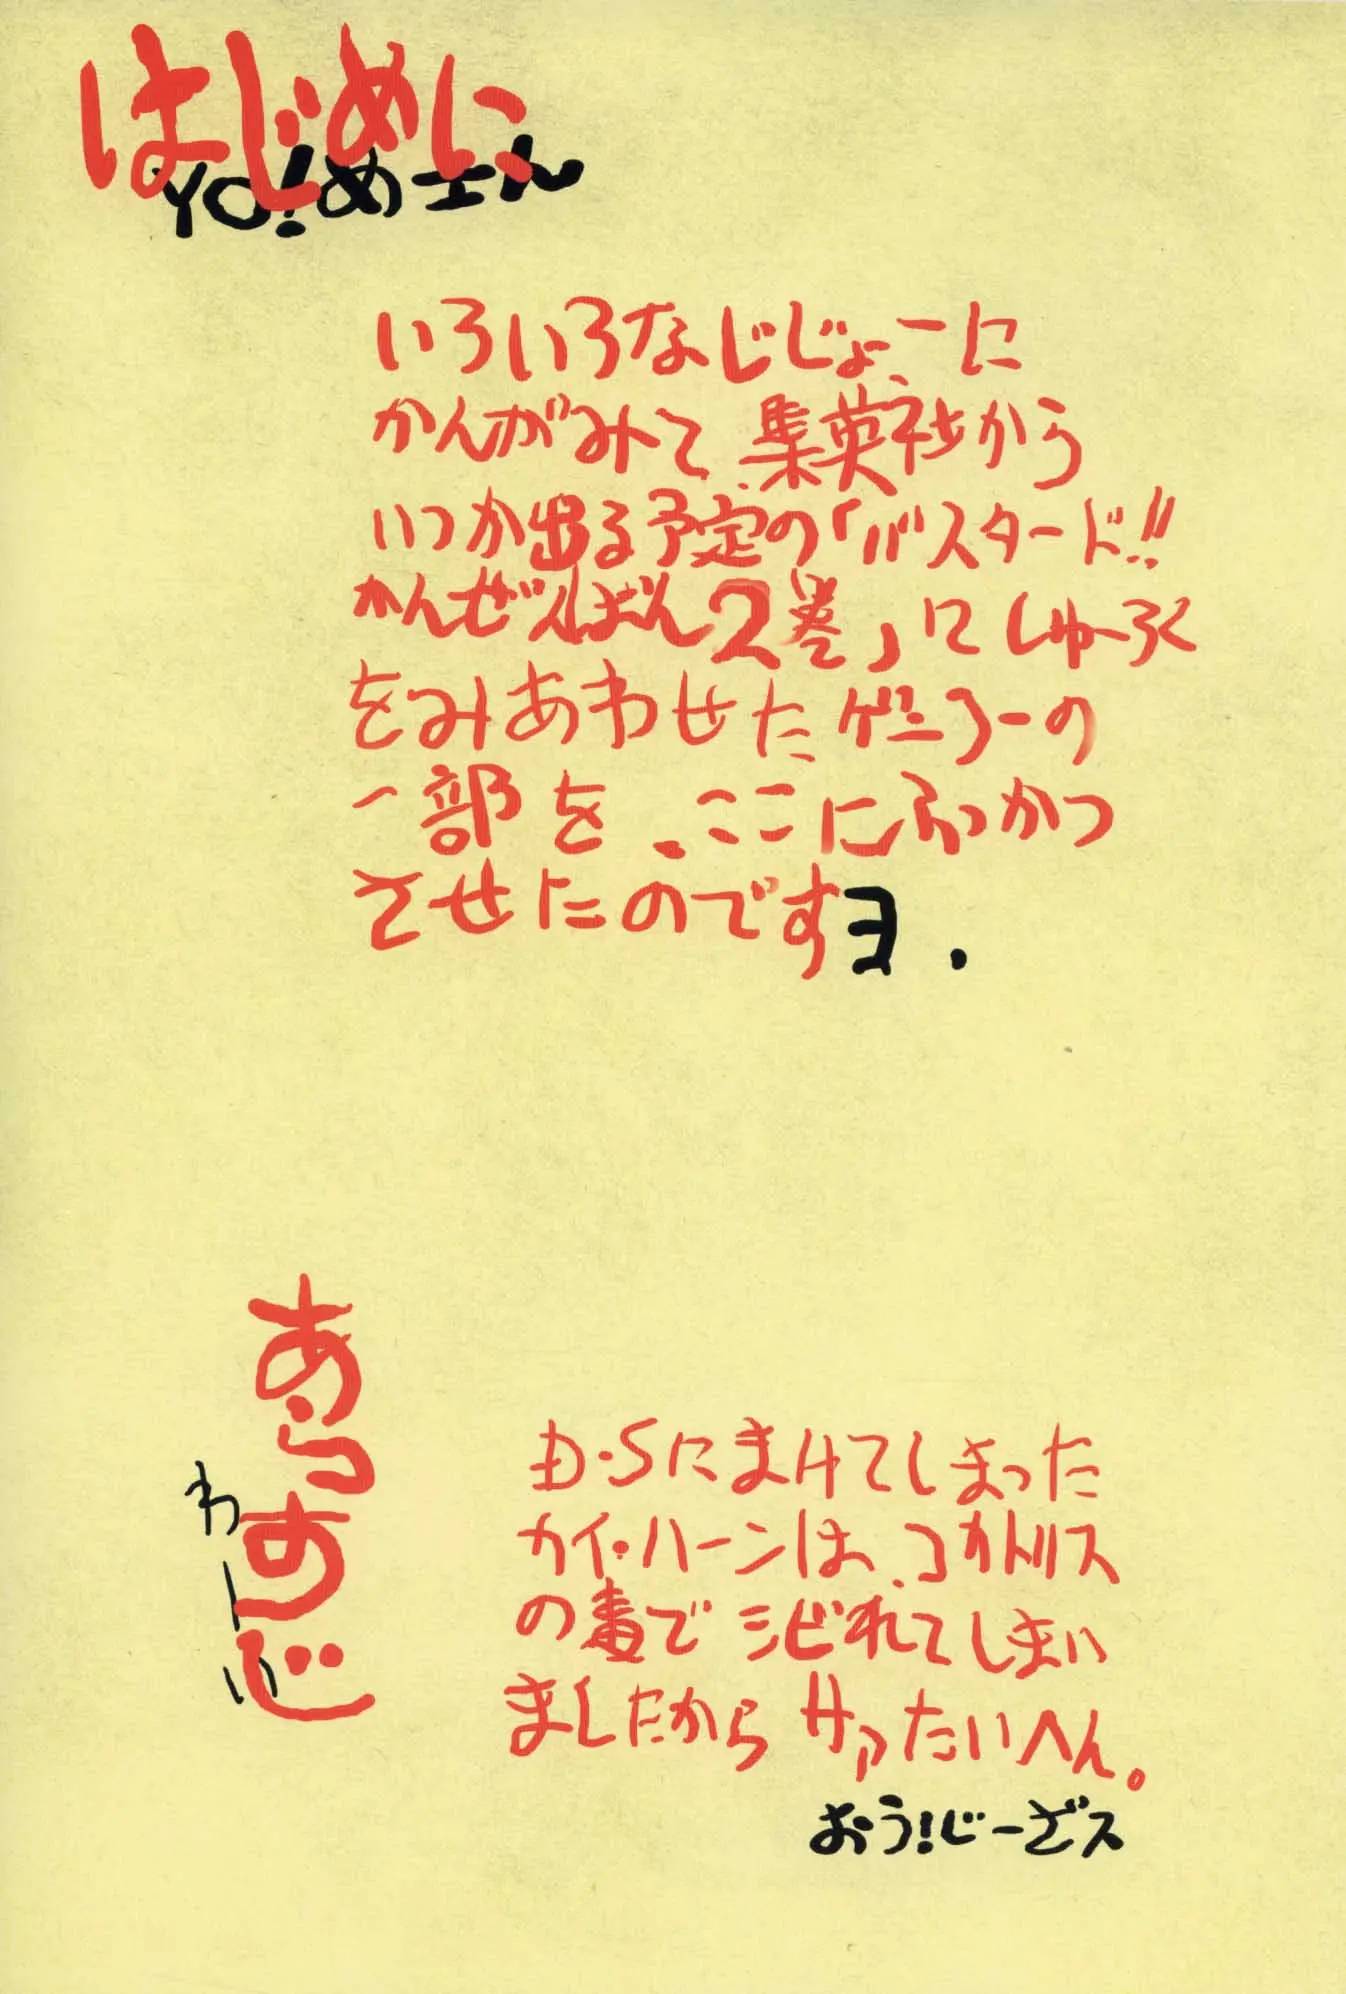 はじめに
YO!めさん
いろいろなじじょーに
かんがみて集英社から
いつか出る予定の「バスタード!!
かんぜんばん2巻」にしゅーろく
をみあわせたゲンコーの
一部を、ここにふっかつ
させたのですヨ.
あらすじ
わーい
D・Sにまけてしまった
カイ・ハーンは、コカトリス
の毒でシビれてしまい
ましたからサァたいへん。
おう!じーざス